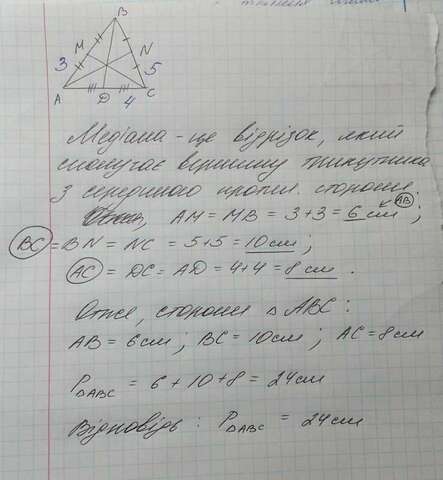 B
M N
3 5
A D 4 C
Медіана - це відрізок, який
сполучає вершину трикутника
з серединою протил. сторони.
AM = MB = 3+3 = 6 см ; AB
BC = BN = NC = 5+5 = 10 см ;
AC = DC = AD = 4+4 = 8 см .
Отже, сторони △ ABC :
AB = 6 см ; BC = 10 см ; AC = 8 см
P△ABC = 6 + 10 + 8 = 24 см
Відповідь : P△ABC = 24 см